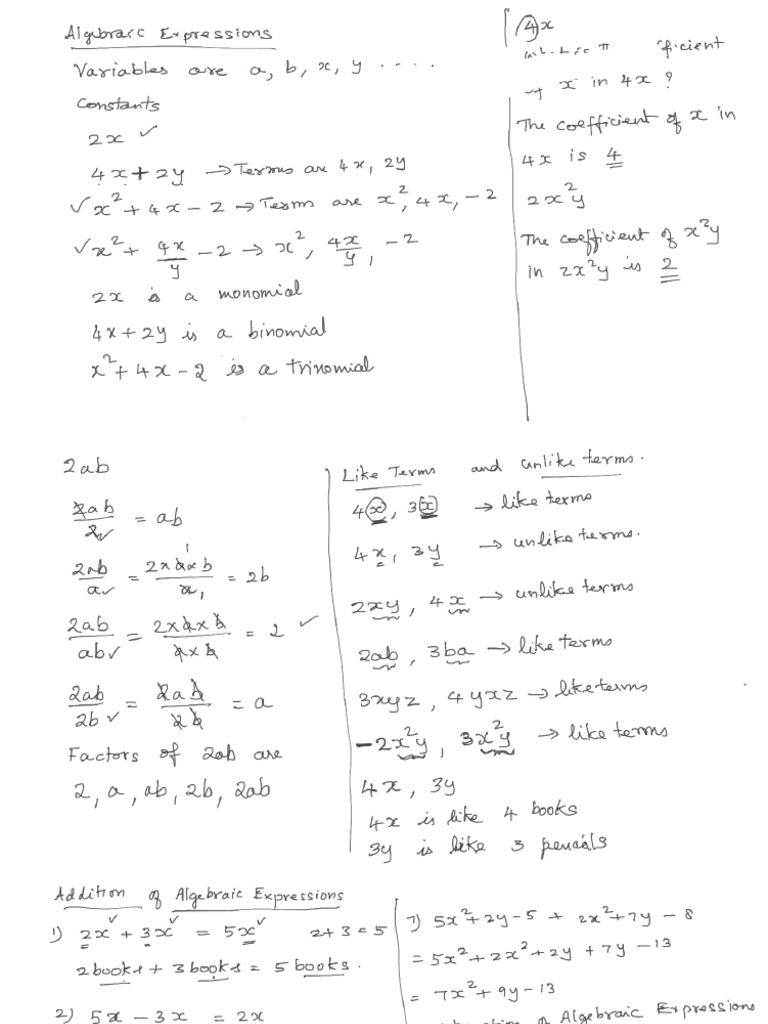 Algebraic Expressions
Variables are a, b, x, y ....
Constants
2x ✓
4x + 2y → Terms are 4x, 2y
✓ x² + 4x - 2 → Terms are x², 4x, -2
✓ x² + 4x/y - 2 → x², 4x/y, -2
2x is a monomial
4x + 2y is a binomial
x² + 4x - 2 is a trinomial
4x
x in 4x ?
The coefficient of x in
4x is 4
2x²y
The coefficient of x²y
in 2x²y is 2
2ab
2ab/2 ✓ = ab
2ab/a ✓ = 2×a×b/a = 2b
2ab/ab ✓ = 2×a×b/a×b = 2 ✓
2ab/2b ✓ = 2ab/2b = a
Factors of 2ab are
2, a, ab, 2b, 2ab
Like Terms and unlike terms.
4x, 3x → like terms
4x, 3y → unlike terms.
2xy, 4x → unlike terms
2ab, 3ba → like terms
3xyz, 4yxz → like terms
-2x²y, 3x²y → like terms
4x, 3y
4x is like 4 books
3y is like 3 pencils
Addition of Algebraic Expressions
1) 2x ✓ + 3x ✓ = 5x ✓ 2+3 = 5
2 books + 3 books = 5 books.
2) 5x - 3x = 2x
7) 5x² + 2y - 5 + 2x² + 7y - 8
= 5x² + 2x² + 2y + 7y - 13
= 7x² + 9y - 13
of Algebraic Expressions